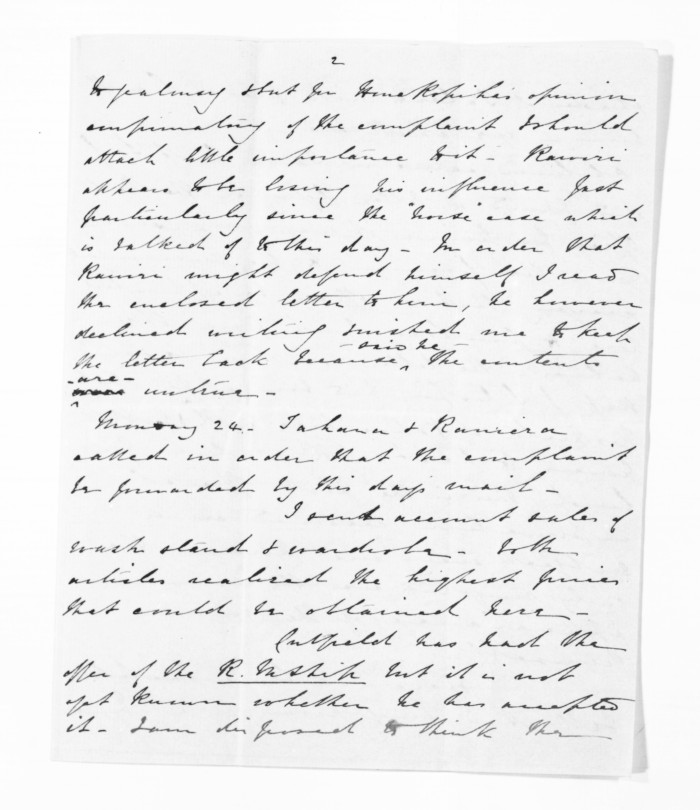 2
to jealousy & but for Honekopihas opinion
confirmatory of the complaint I should
attach little importance to it - Rawiri
appears to be losing his influence fast
particularly since the "horse" case which
is talked of to this day - In order that
Rawiri might defend himself I read
the enclosed letter to him, he however
declined writing & wished me to keep
the letter back because, said he - the contents
- are - untrue -
Monday 24 - Tahana & Raniera
called in order that the complaint
be forwarded by this days mail -
I send account sales of
wash stand & wardrobe - Both
articles realized the highest prices
that could be obtained here -
Cutfield has had the
offer of the R. MStship but it is not
yet known whether he has accepted
it - I am disposed to think the